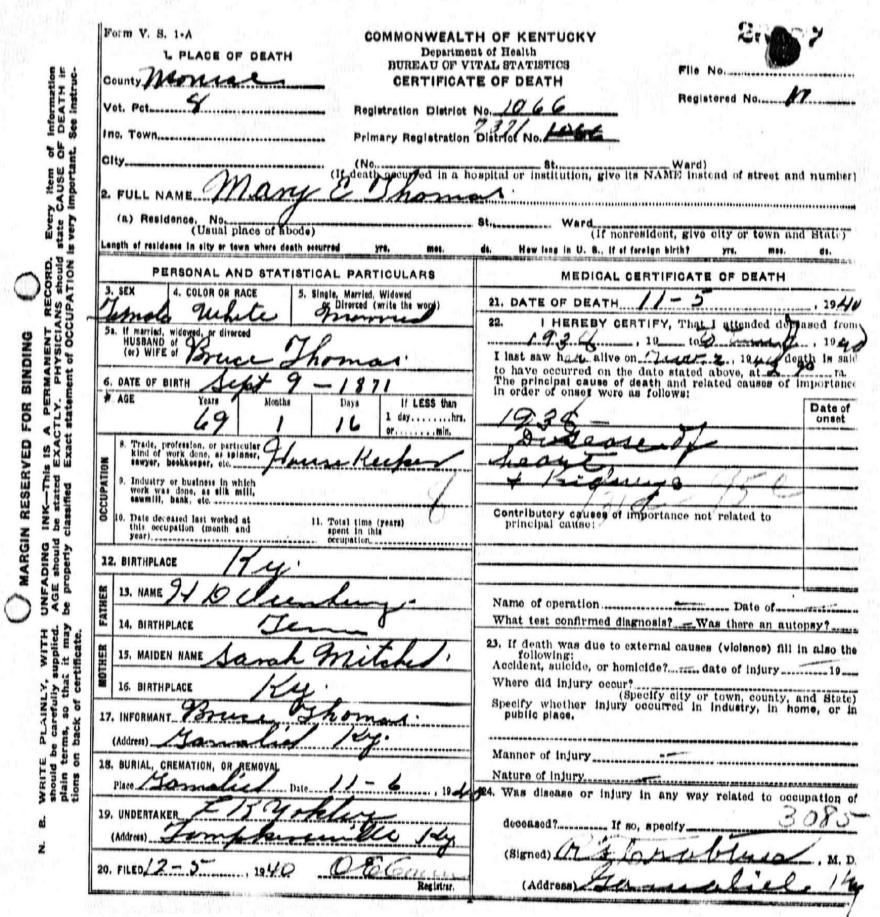 Form V. S. 1-A
COMMONWEALTH OF KENTUCKY
Department of Health
BUREAU OF VITAL STATISTICS
CERTIFICATE OF DEATH
File No.
Registered No.
1. PLACE OF DEATH
County Monroe
Vot. Pct. 4
Inc. Town
City
Registration District No. 1066
Primary Registration District No. 7371
(No. St. Ward)
(If death occurred in a hospital or institution, give its NAME instead of street and number)
2. FULL NAME Mary E Thomas
(a) Residence, No. St., Ward
(Usual place of abode) (If nonresident, give city or town and State)
Length of residence in city or town where death occurred yrs. mos. ds. How long in U. S., if of foreign birth? yrs. mos. ds.
PERSONAL AND STATISTICAL PARTICULARS
3. SEX 4. COLOR OR RACE 5. Single, Married, Widowed or Divorced (write the word)
Female White Married
5a. If married, widowed, or divorced
HUSBAND of
(or) WIFE of Bruce Thomas
6. DATE OF BIRTH Sept 9 - 1871
AGE Years Months Days If LESS than
69 1 16 1 day, hrs.
or min.
OCCUPATION
8. Trade, profession, or particular kind of work done, as spinner, sawyer, bookkeeper, etc. House Keeper
9. Industry or business in which work was done, as silk mill, sawmill, bank, etc.
10. Date deceased last worked at this occupation (month and year)
11. Total time (years) spent in this occupation
12. BIRTHPLACE Ky.
FATHER
13. NAME H D
14. BIRTHPLACE Tenn
MOTHER
15. MAIDEN NAME Sarah Mitchel
16. BIRTHPLACE Ky.
17. INFORMANT Bruce Thomas
(Address) Gamaliel Ky.
18. BURIAL, CREMATION, OR REMOVAL
Place Gamaliel Date 11-6, 1940
19. UNDERTAKER Yokley
(Address) Tompkinsville Ky
20. FILED 12-5, 1940
Registrar.
MEDICAL CERTIFICATE OF DEATH
21. DATE OF DEATH 11-5, 1940
22. I HEREBY CERTIFY, That I attended deceased from
1938, 19 to 1940
I last saw her alive on 1940 death is said
to have occurred on the date stated above, at m.
The principal cause of death and related causes of importance in order of onset were as follows:
Date of onset
1938 -
Disease of
heart
& Kidneys
Contributory causes of importance not related to principal cause:
Name of operation Date of
What test confirmed diagnosis? Was there an autopsy?
23. If death was due to external causes (violence) fill in also the following:
Accident, suicide, or homicide? date of injury 19
Where did injury occur?
(Specify city or town, county, and State)
Specify whether injury occurred in industry, in home, or in public place.
Manner of injury
Nature of injury
24. Was disease or injury in any way related to occupation of
deceased? If so, specify 3085
(Signed) Crabtree, M. D.
(Address) Gamaliel Ky
MARGIN RESERVED FOR BINDING
N. B. WRITE PLAINLY, WITH UNFADING INK—THIS IS A PERMANENT RECORD. Every item of information
should be carefully supplied. AGE should be stated EXACTLY. PHYSICIANS should state CAUSE OF DEATH in
plain terms, so that it may be properly classified. Exact statement of OCCUPATION is very important. See instruc-
tions on back of certificate.